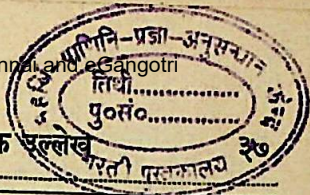 nnai and eGangotri
पाणिनि-प्रज्ञा-अनुसन्धान
तिथी..............
पु०सं०..............
पुस्तकालय
क उल्लेख
३७